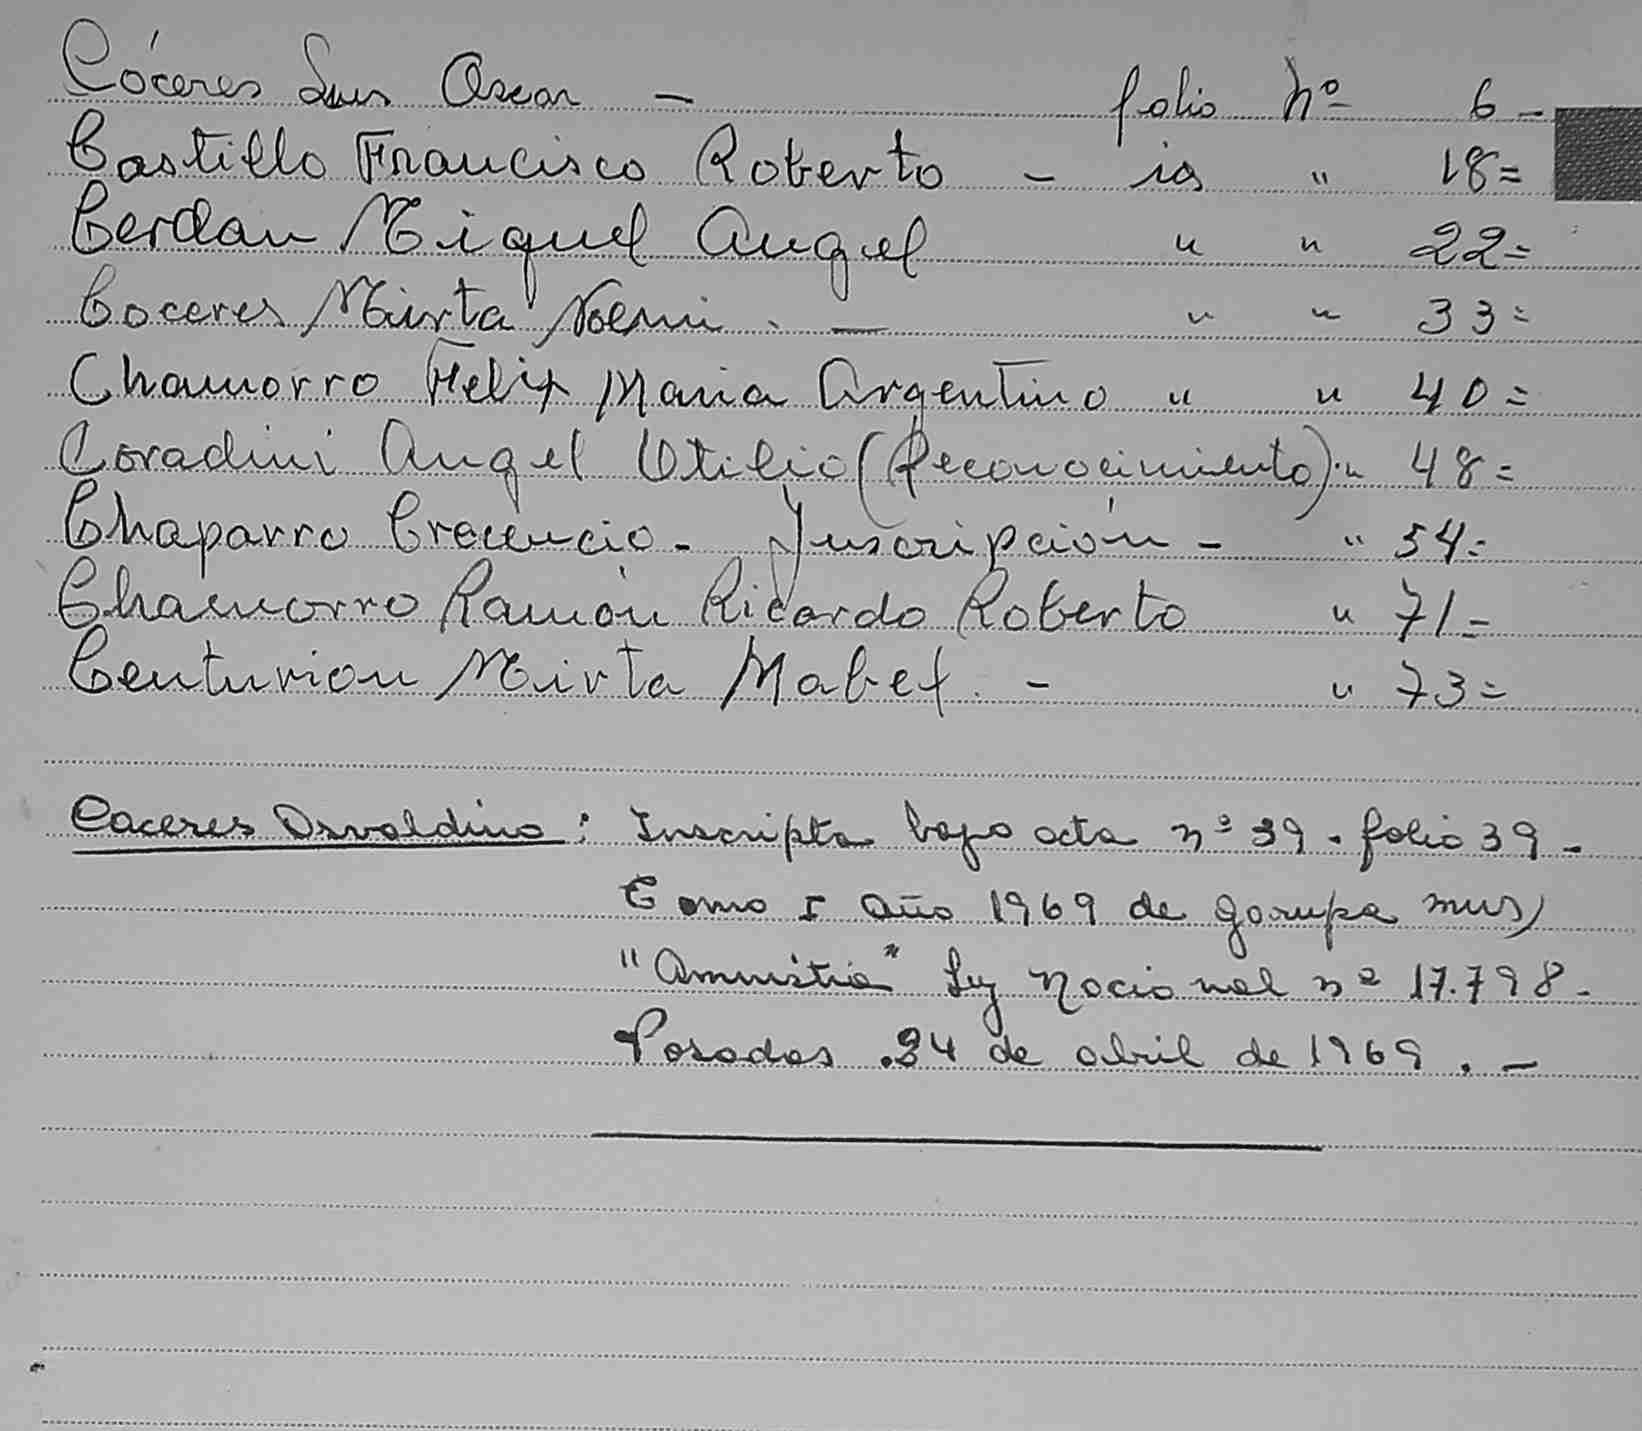 Cáceres Luis Oscar - folio Nº 6 -
Castillo Francisco Roberto - id " 18=
Cerdan Miguel Angel " " 22=
Coceres Mirta Noemi . - " " 33=
Chamorro Felix Maria Argentino " " 40=
Coradini Angel Otilio (Reconocimiento) . " 48=
Chaparro Crecencio - Inscripción - " 54=
Chamorro Ramón Ricardo Roberto " 71=
Centurion Mirta Mabel . - " 73=
Caceres Osvaldina : Inscripta bajo acta nº 39 - folio 39 -
Tomo I año 1969 de garupa mns)
"Amnistia" Ley Nacional nº 17.798 -
Posadas . 24 de abril de 1969 . -